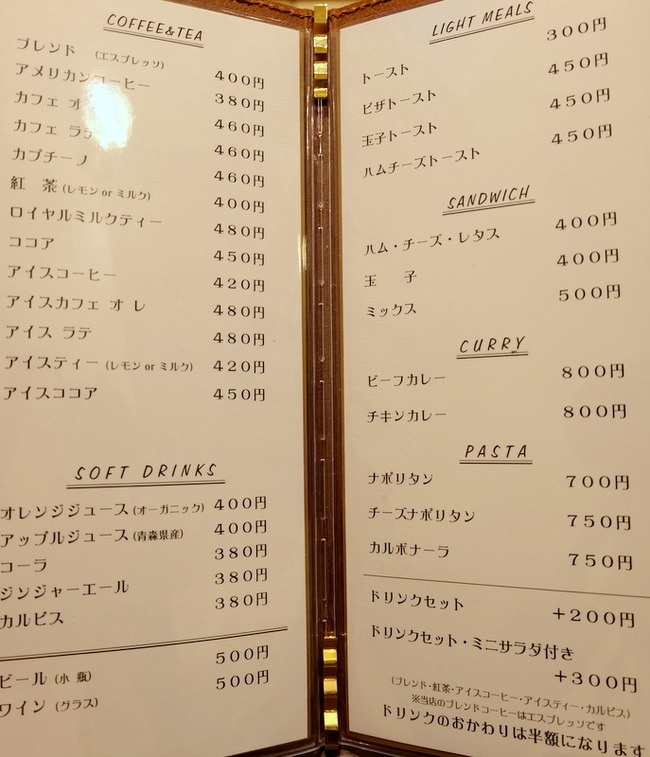 COFFEE&TEA
ブレンド (エスプレッソ) 400円
アメリカンコーヒー 380円
カフェ オ 460円
カフェ ラテ 460円
カプチーノ 460円
紅 茶 (レモン or ミルク) 400円
ロイヤルミルクティー 480円
ココア 450円
アイスコーヒー 420円
アイスカフェ オ レ 480円
アイス ラテ 480円
アイスティー (レモン or ミルク) 420円
アイスココア 450円
SOFT DRINKS
オレンジジュース (オーガニック) 400円
アップルジュース (青森県産) 400円
コーラ 380円
ジンジャーエール 380円
カルピス 380円
ビール (小 瓶) 500円
ワイン (グラス) 500円
LIGHT MEALS
トースト 300円
ピザトースト 450円
玉子トースト 450円
ハムチーズトースト 450円
SANDWICH
ハム・チーズ・レタス 400円
玉 子 400円
ミックス 500円
CURRY
ビーフカレー 800円
チキンカレー 800円
PASTA
ナポリタン 700円
チーズナポリタン 750円
カルボナーラ 750円
ドリンクセット +200円
ドリンクセット・ミニサラダ付き
+300円
(ブレンド・紅茶・アイスコーヒー・アイスティー・カルピス)
※当店のブレンドコーヒーはエスプレッソです
ドリンクのおかわりは半額になります